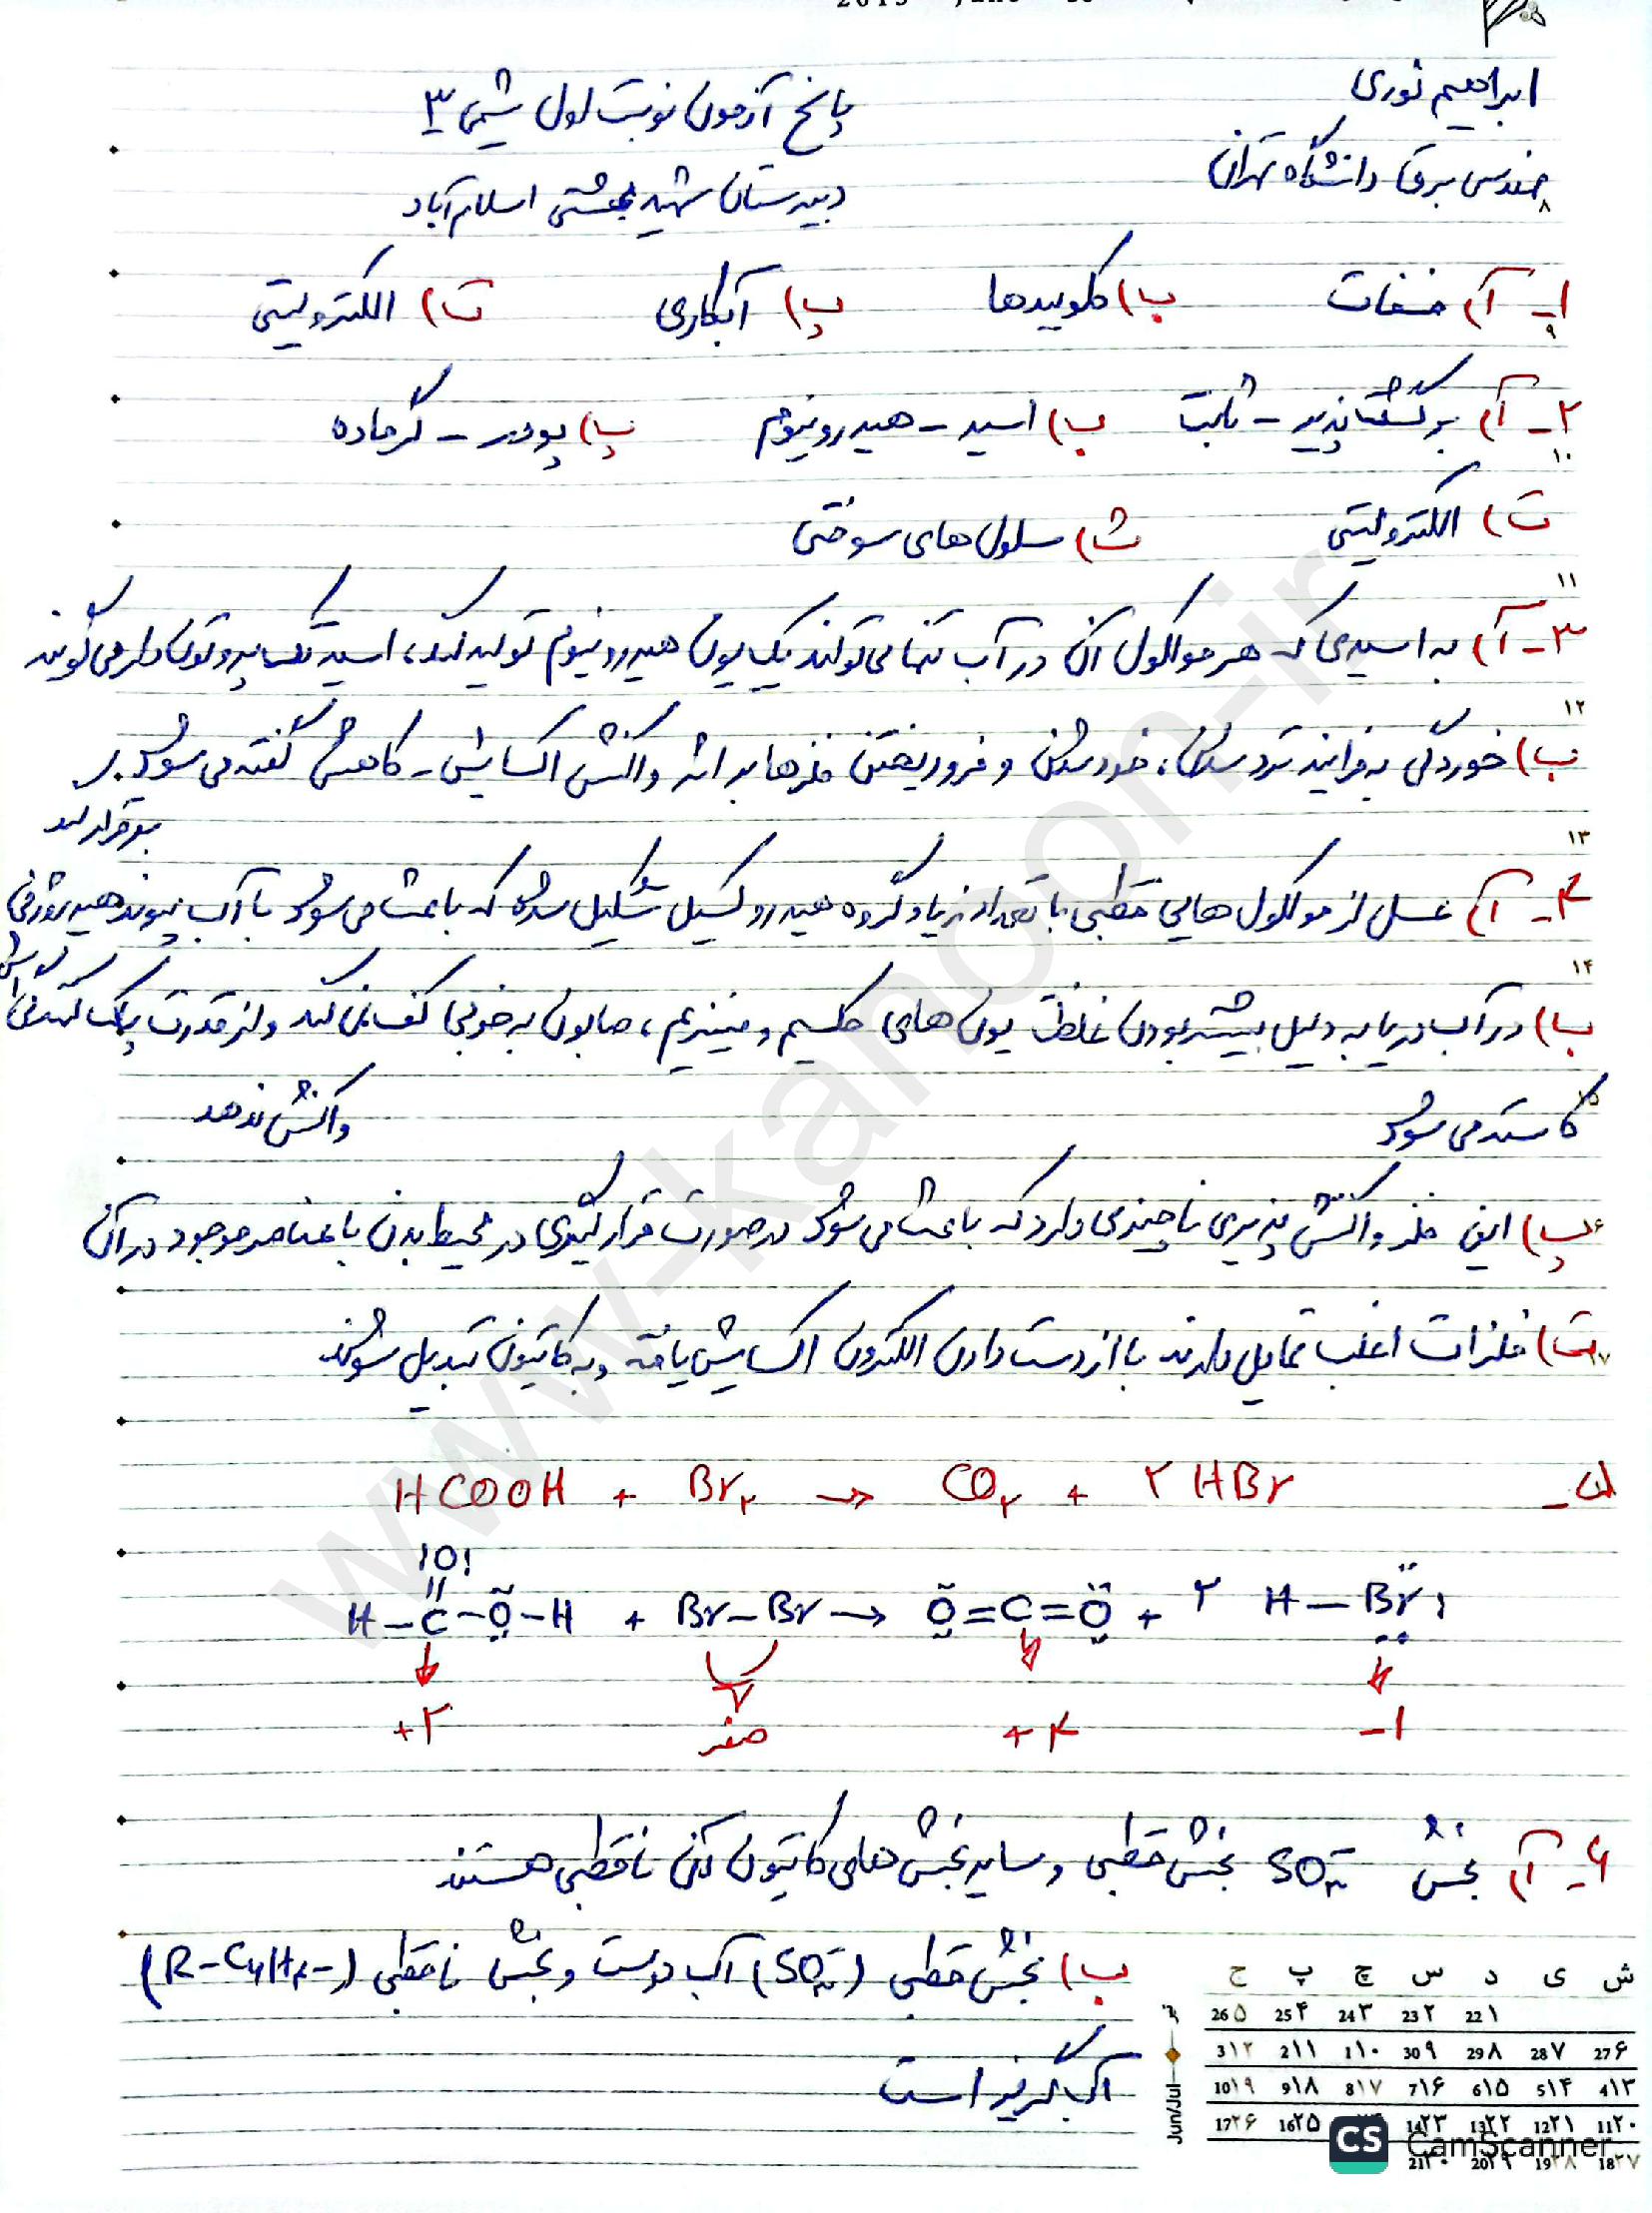 ابراهیم نوری
پاسخ آزمون نوبت اول شیمی ۳
مهندسی برق دانشگاه تهران
دبیرستان شهید بهشتی اسلام آباد
۱_ آ) فسفات ب) کلوییدها پ) آبکاری ت) الکترولیتی
۲_ آ) برگشت‌پذیر - ثابت ب) اسید - هیدرونیوم پ) پودر - گرماده
ت) الکترولیتی ث) سلول های سوختی
۳_ آ) به اسیدی که هر مولکول آن در آب تنها می تواند یک یون هیدرونیوم تولید کند، اسید تک پروتون دار می گویند
ب) خوردگی به فرایند ترد شدن، خرد شدن و فرو ریختن فلزها بر اثر واکنش اکسایش - کاهش گفته می شود.
برقرار کند
۴_ آ) عسل از مولکول هایی قطبی با تعداد زیاد گروه هیدروکسیل تشکیل شده که باعث می شود با آب پیوند هیدروژنی
ب) در آب دریا به دلیل بیشتر بودن غلظت یون های کلسیم و منیزیم، صابون به خوبی کف نمی کند و از قدرت پاک کنندگی اش
کاسته می شود
واکنش ندهد
پ) این فلز واکنش پذیری ناچیزی دارد که باعث می شود در صورت قرار گیری در محیط بدن با عناصر موجود در آن
ت) فلزات اغلب تمایل دارند با از دست دادن الکترون اکسایش یافته و به کاتیون تبدیل شوند
۵_ HCOOH + Br۲ → CO۲ + ۲ HBr
O
H – C – O – H + Br – Br → O = C = O + ۲ H – Br
+۲ صفر +۴ -۱
۶_ آ) بخش SO۳⁻ بخش قطبی و سایر بخش های کاتیون آن ناقطبی هستند
ب) بخش قطبی (SO۳⁻) آب دوست و بخش ناقطبی (R-C۶H۴-)
آب گریز است
ش ی د س چ پ ج
22 ۱ 23 ۲ 24 ۳ 25 ۴ 26 ۵
27 ۶ 28 ۷ 29 ۸ 30 ۹ 1 ۱۰ 2 ۱۱ 3 ۱۲
4 ۱۳ 5 ۱۴ 6 ۱۵ 7 ۱۶ 8 ۱۷ 9 ۱۸ 10 ۱۹
11 ۲۰ 12 ۲۱ 13 ۲۲ 14 ۲۳ 16 ۲۵ 17 ۲۶
18 ۲۷ 19 ۲۸ 20 ۲۹ 21 ۳۰
Jun/Jul
۸
۹
۱۰
۱۱
۱۲
۱۳
۱۴
۱۵
۱۶
۱۷
www-kanoon-ir
CS CamScanner